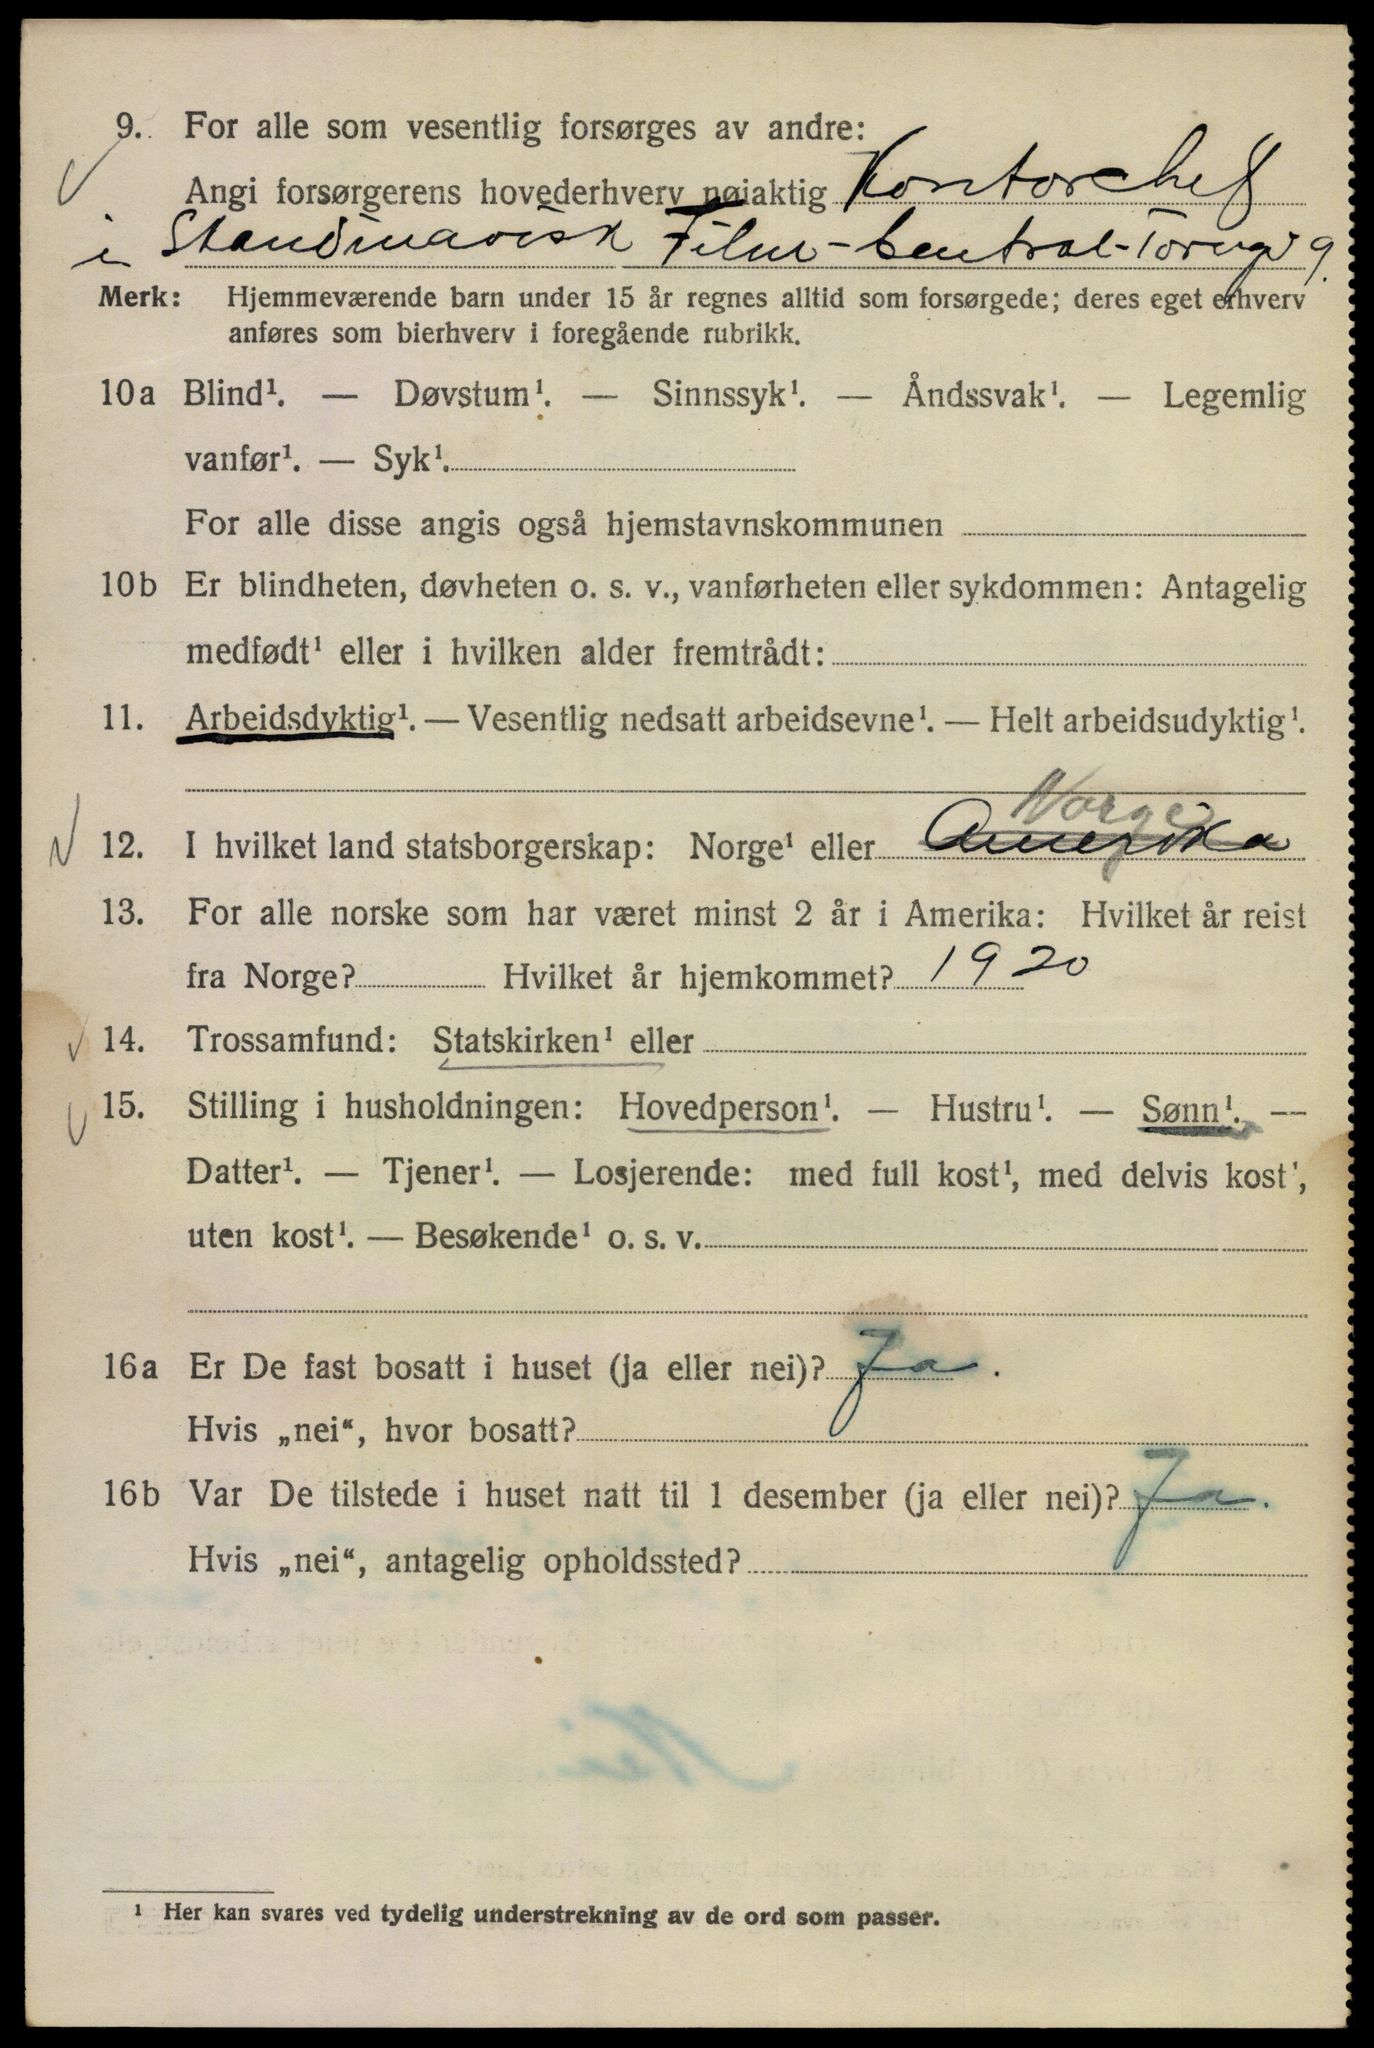 9. For alle som vesentlig forsørges av andre:
Angi forsørgerens hovederhverv nøiaktig Kontorchef
i Skandinavisk Film-Central-Torvgt 9.
Merk: Hjemmeværende barn under 15 år regnes alltid som forsørgede; deres eget erhverv
anføres som bierhverv i foregående rubrikk.
10a Blind¹. — Døvstum¹. — Sinnssyk¹. — Åndssvak¹. — Legemlig
vanfør¹. — Syk¹.
For alle disse angis også hjemstavnskommunen
10b Er blindheten, døvheten o. s. v., vanførheten eller sykdommen: Antagelig
medfødt¹ eller i hvilken alder fremtrådt:
11. Arbeidsdyktig¹. — Vesentlig nedsatt arbeidsevne¹. — Helt arbeidsudyktig¹.
Norge
12. I hvilket land statsborgerskap: Norge¹ eller Amerika
13. For alle norske som har været minst 2 år i Amerika: Hvilket år reist
fra Norge? Hvilket år hjemkommet? 1920
14. Trossamfund: Statskirken¹ eller
15. Stilling i husholdningen: Hovedperson¹. — Hustru¹. — Sønn¹. —
Datter¹. — Tjener¹. — Losjerende: med full kost¹, med delvis kost¹,
uten kost¹. — Besøkende¹ o. s. v.
16a Er De fast bosatt i huset (ja eller nei)? Ja.
Hvis „nei“, hvor bosatt?
16b Var De tilstede i huset natt til 1 desember (ja eller nei)? Ja.
Hvis „nei“, antagelig opholdssted?
¹ Her kan svares ved tydelig understrekning av de ord som passer.